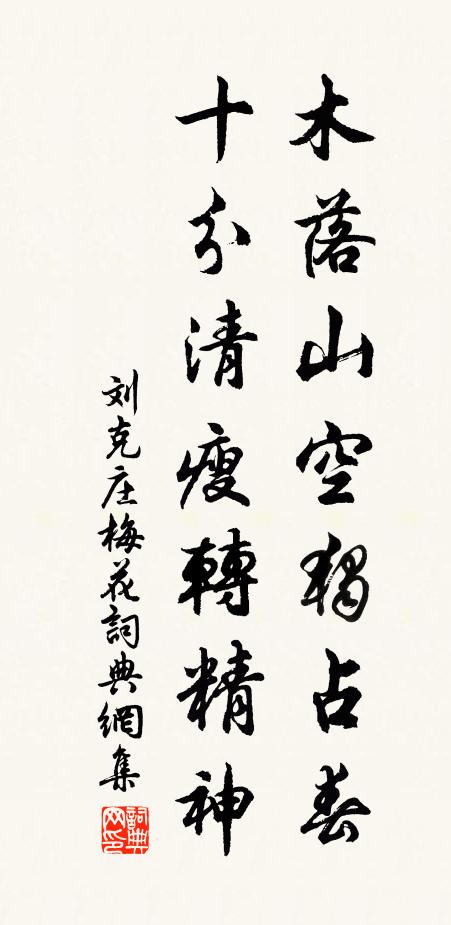 木落山空獨占春
十分清瘦轉精神
刘克庄梅花詞典網集
詞典网印